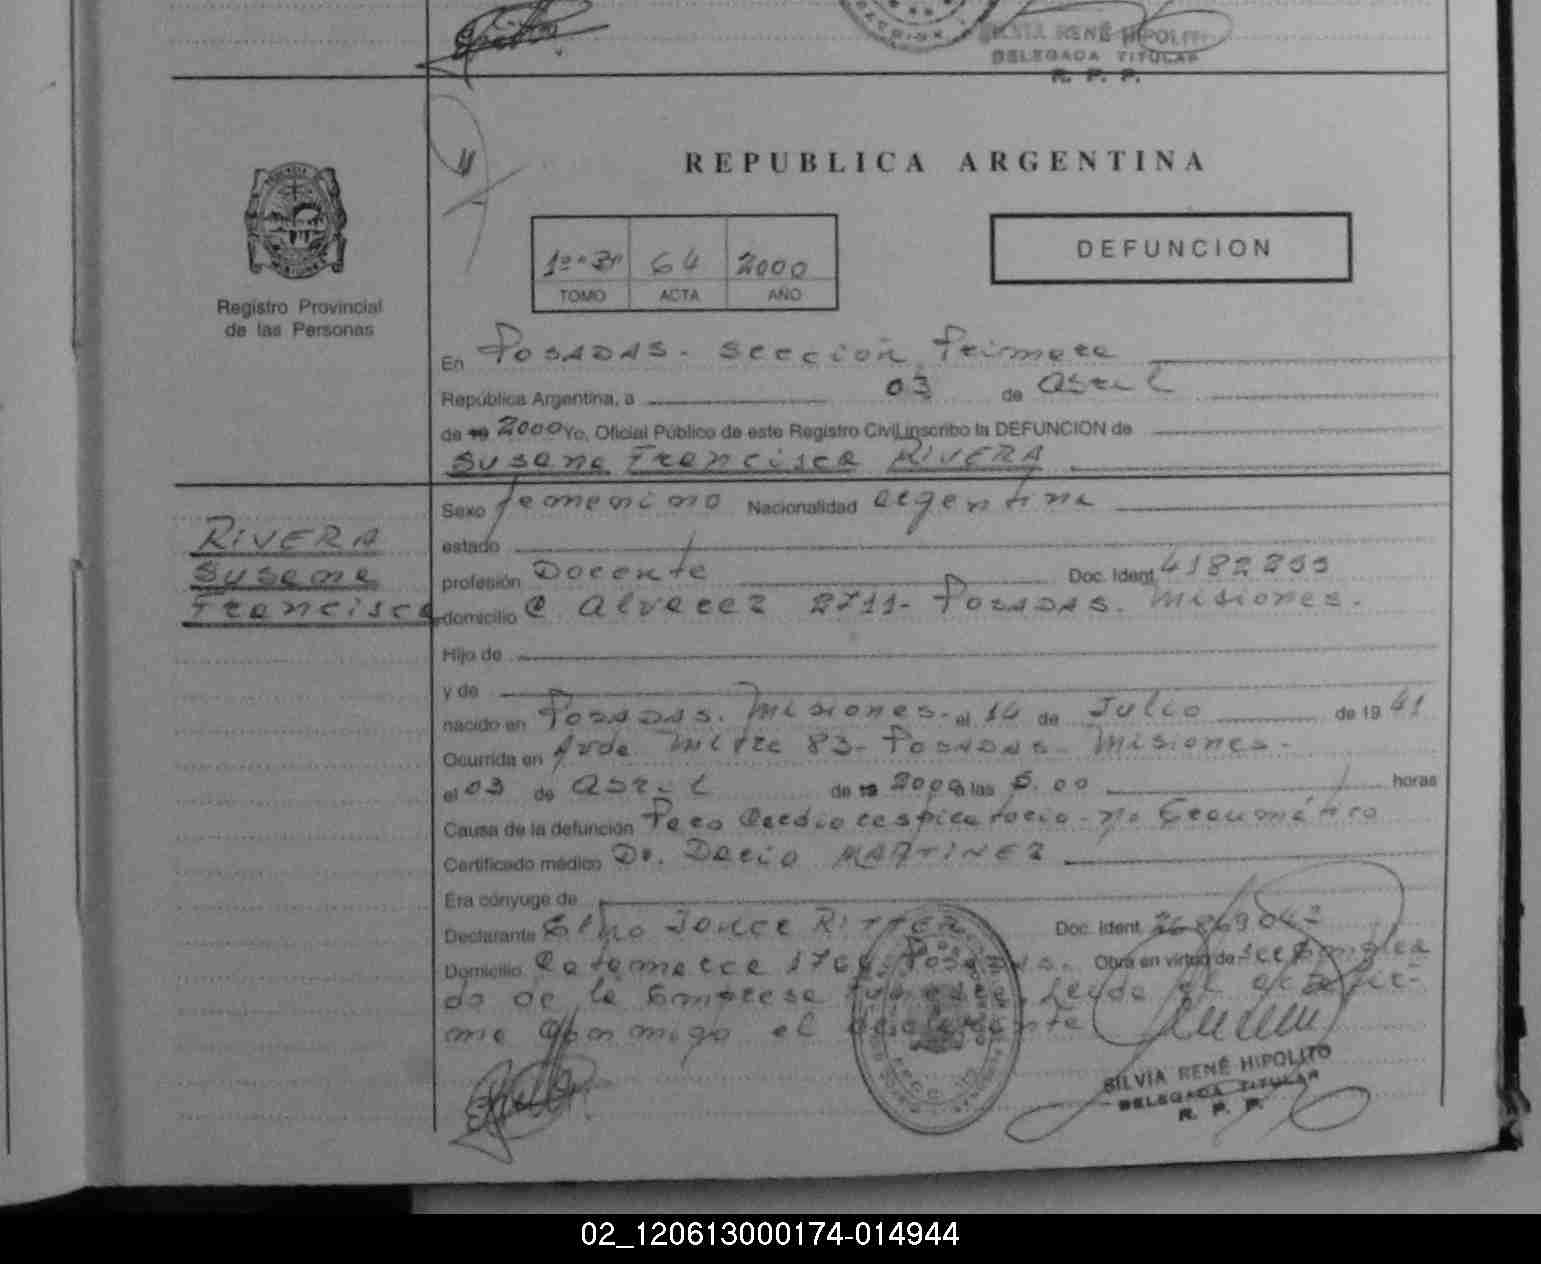 SILVIA RENÉ HIPOLITO
DELEGADA TITULAR
R. P. P.
REPUBLICA ARGENTINA
64 2000
TOMO ACTA AÑO
DEFUNCION
Registro Provincial
de las Personas
En Posadas - Sección Primera
República Argentina, a 03 de abril
de 19 2000 Yo, Oficial Público de este Registro Civil, inscribo la DEFUNCION de
Susana Francisca RIVERA
RIVERA
Susana
Francisca
Sexo femenino Nacionalidad argentina
estado
profesión Docente Doc. Ident.
domicilio C Alvarez 2711 - Posadas. Misiones.
Hijo de
y de
nacido en Posadas. Misiones - el 14 de Julio de 19 41
Ocurrida en Avda. Mitre 83 - Posadas - Misiones -
el 03 de abril de 19 2000 a las 5.00 horas
Causa de la defunción Paro Cardiorespiratorio - no traumático
Certificado médico Dr. Dario MARTINEZ
Era cónyuge de
Declarante RITTER Doc. Ident. 26869042
Domicilio Catamarca Posadas. Obra en virtud de ser emplea
do de la Empresa leída el acta fir-
ma conmigo el declarante
SILVIA RENÉ HIPOLITO
DELEGADA TITULAR
R. P. P.
02_120613000174-014944